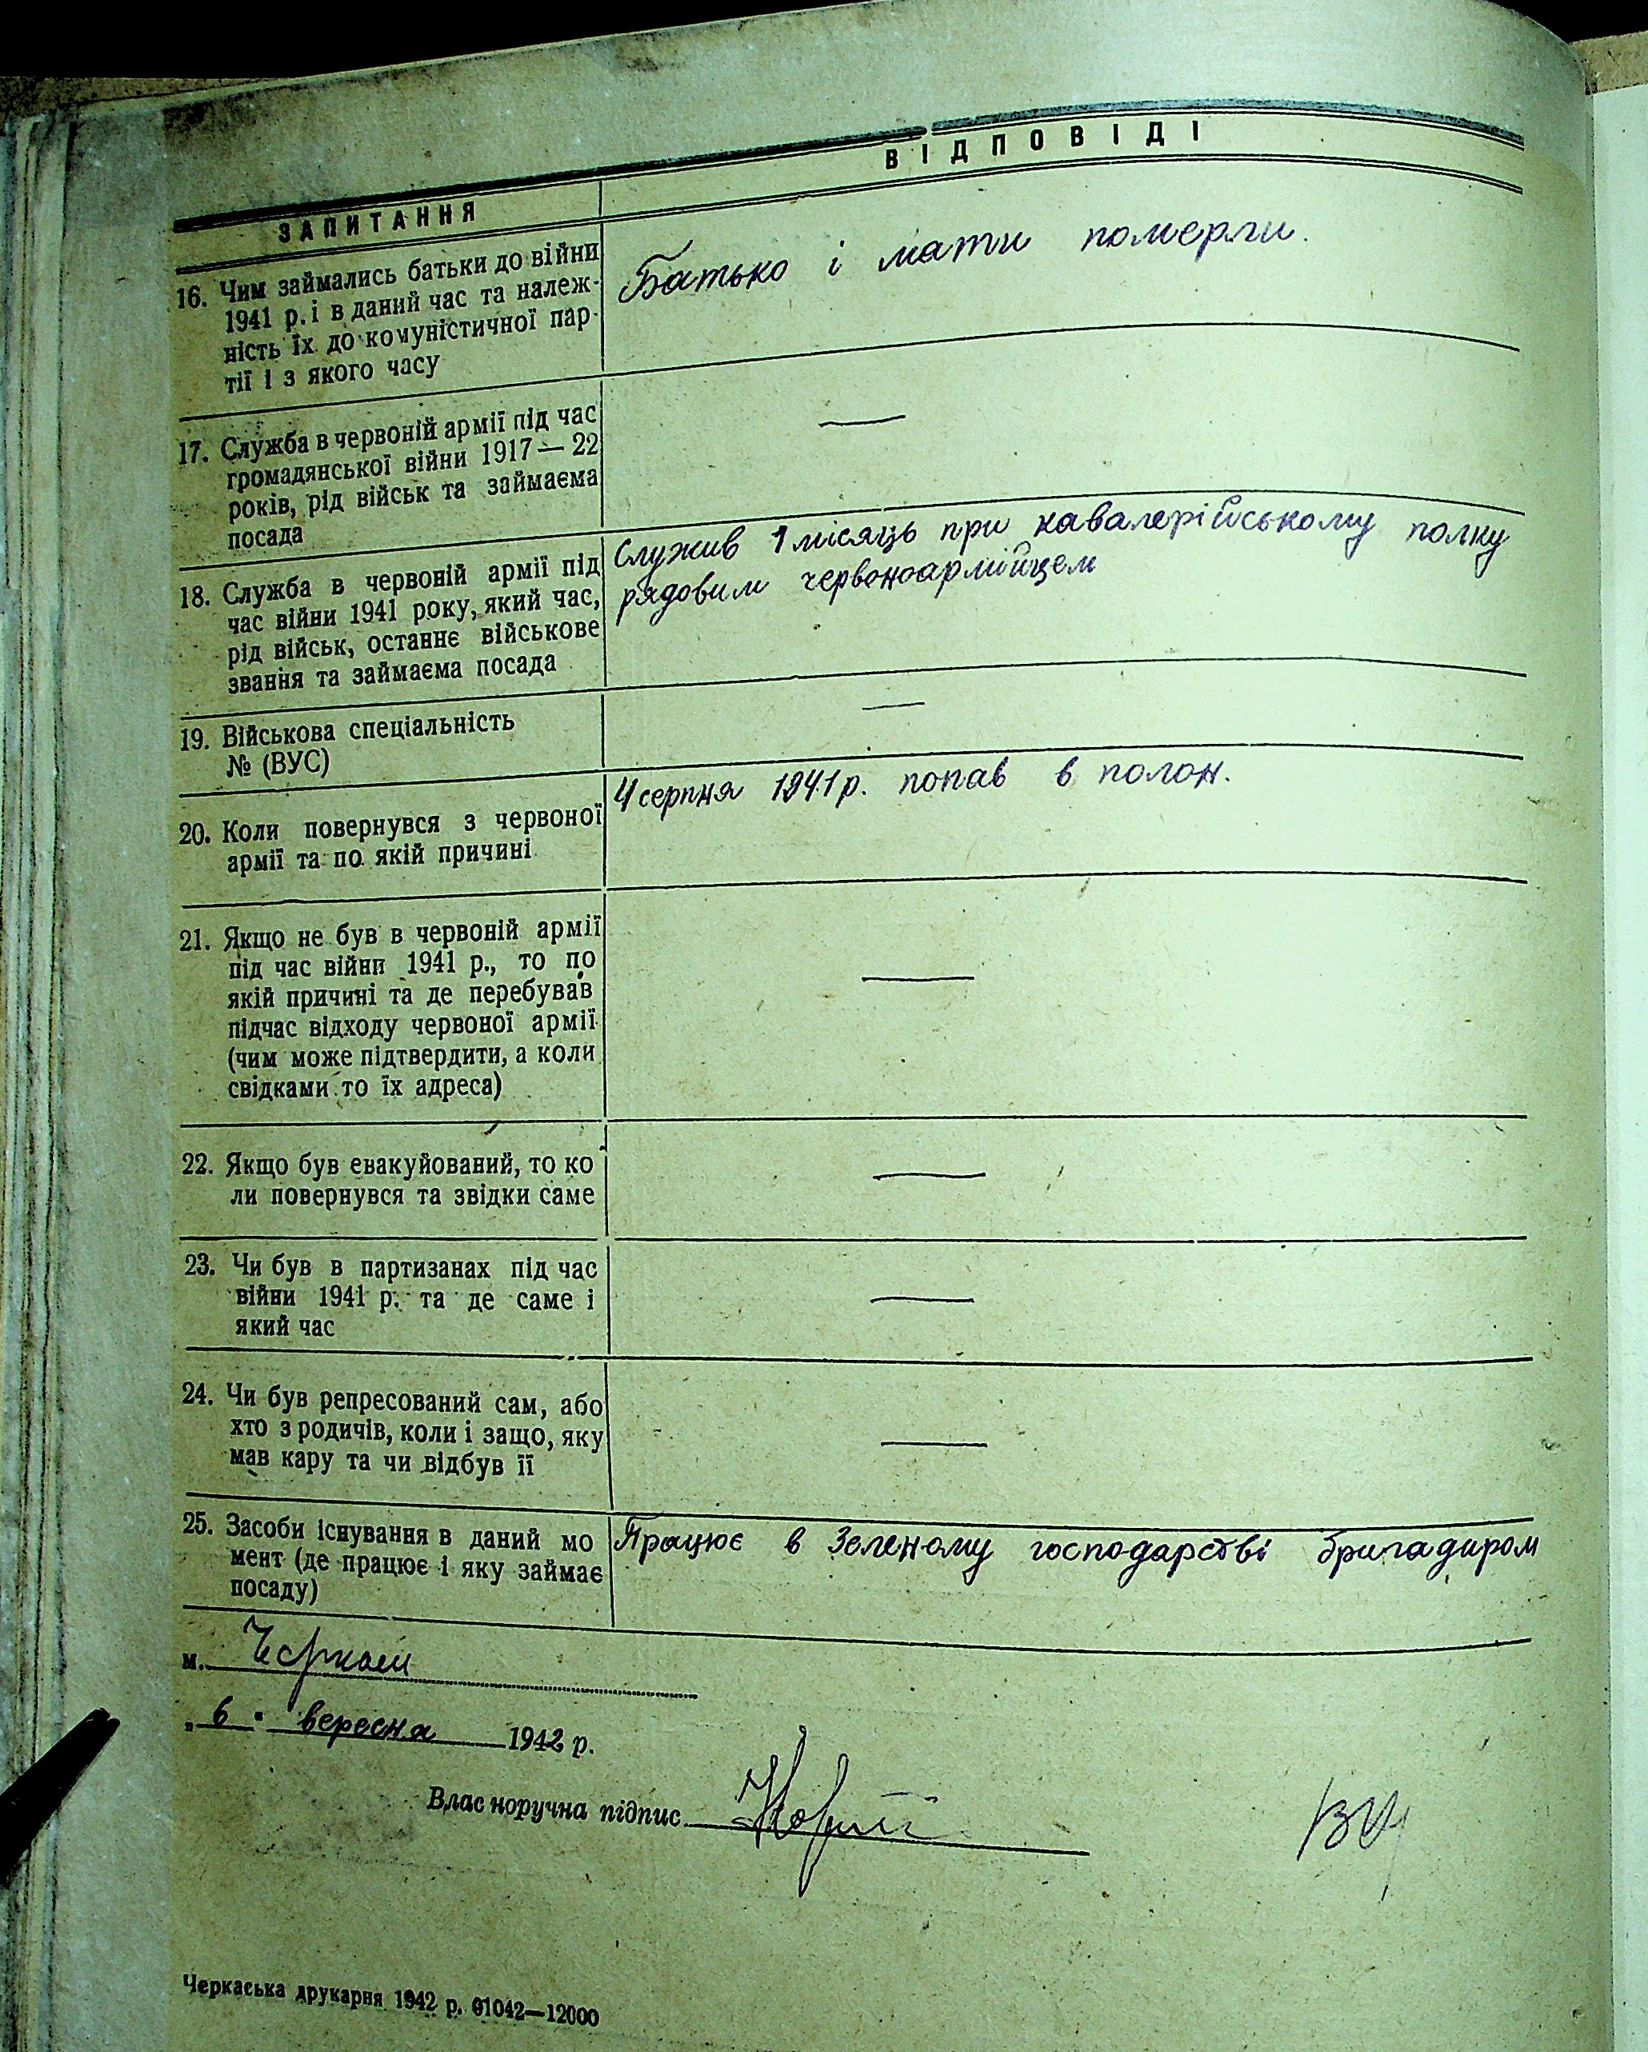 ВІДПОВІДІ
ЗАПИТАННЯ
16. Чим займались батьки до війни
1941 р. і в даний час та належ-
ність їх до комуністичної пар-
тії і з якого часу
Батько і мати померли.
17. Служба в червоній армії під час
громадянської війни 1917 — 22
років, рід військ та займаєма
посада
—
18. Служба в червоній армії під
час війни 1941 року, який час,
рід військ, останнє військове
звання та займаєма посада
Служив 1 місяць при кавалерійському полку
рядовим червоноармійцем
19. Військова спеціальність
№ (ВУС)
—
20. Коли повернувся з червоної
армії та по якій причині
4 серпня 1941 р. попав в полон.
21. Якщо не був в червоній армії
під час війни 1941 р., то по
якій причині та де перебував
підчас відходу червоної армії
(чим може підтвердити, а коли
свідками то їх адреса)
—
22. Якщо був евакуйований, то ко
ли повернувся та звідки саме
—
23. Чи був в партизанах під час
війни 1941 р. та де саме і
який час
—
24. Чи був репресований сам, або
хто з родичів, коли і защо, яку
мав кару та чи відбув її
—
25. Засоби існування в даний мо
мент (де працює і яку займає
посаду)
Працює в Зеленому господарстві бригадиром
м. Черкаси
„ 6 " вересня 1942 р.
Власноручна підпис
Черкаська друкарня 1942 р. 01042—12000